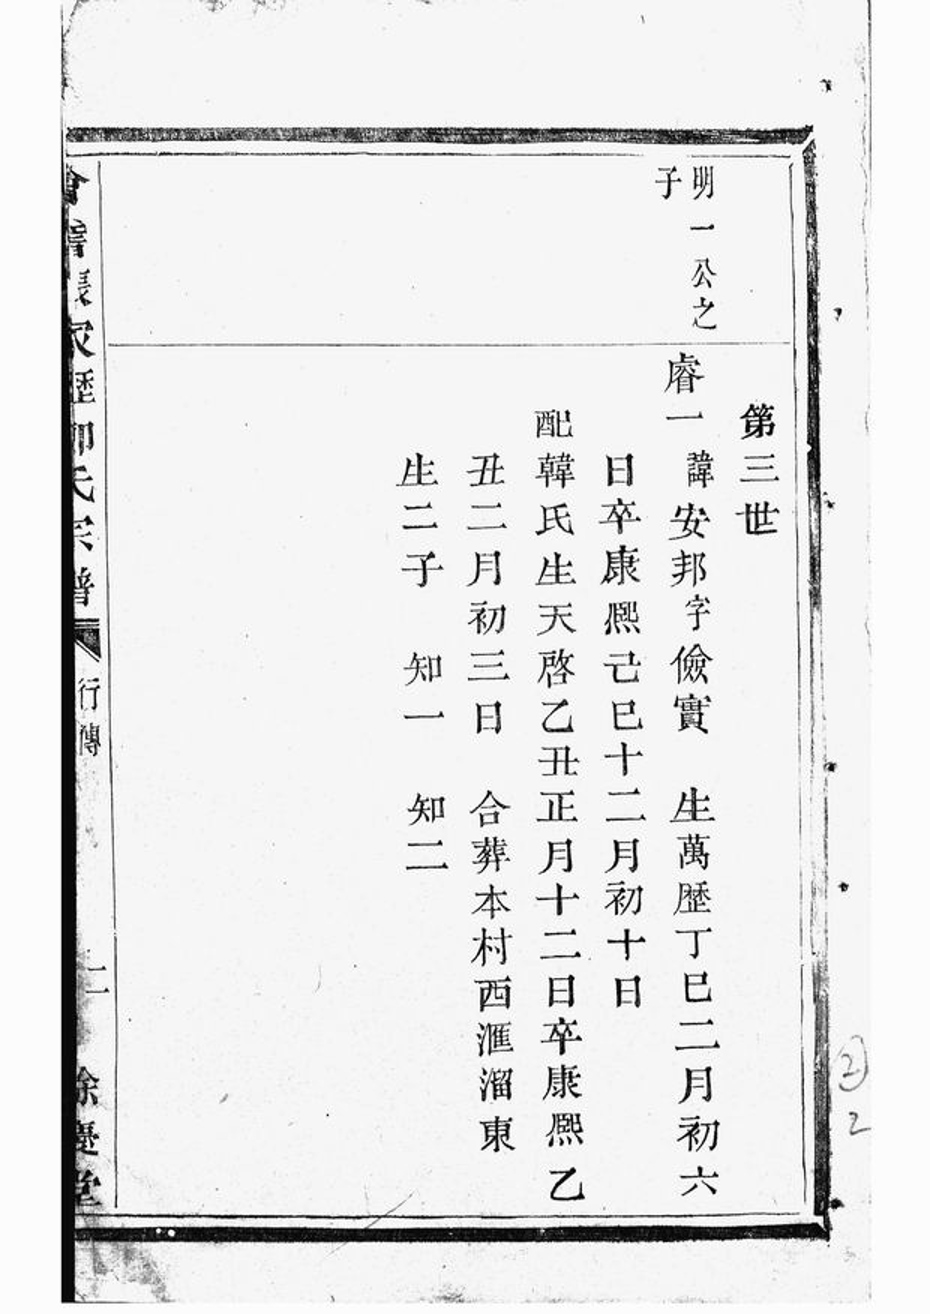 第三世
明一公之
子
睿一諱安邦字儉實 生萬歷丁巳二月初六
日卒康熙己巳十二月初十日
配韓氏生天啓乙丑正月十二日卒康熙乙
丑二月初三日 合葬本村西滙溜東
生二子 知一 知二
會稽張家歷 氏宗譜 行傳 二 餘慶堂